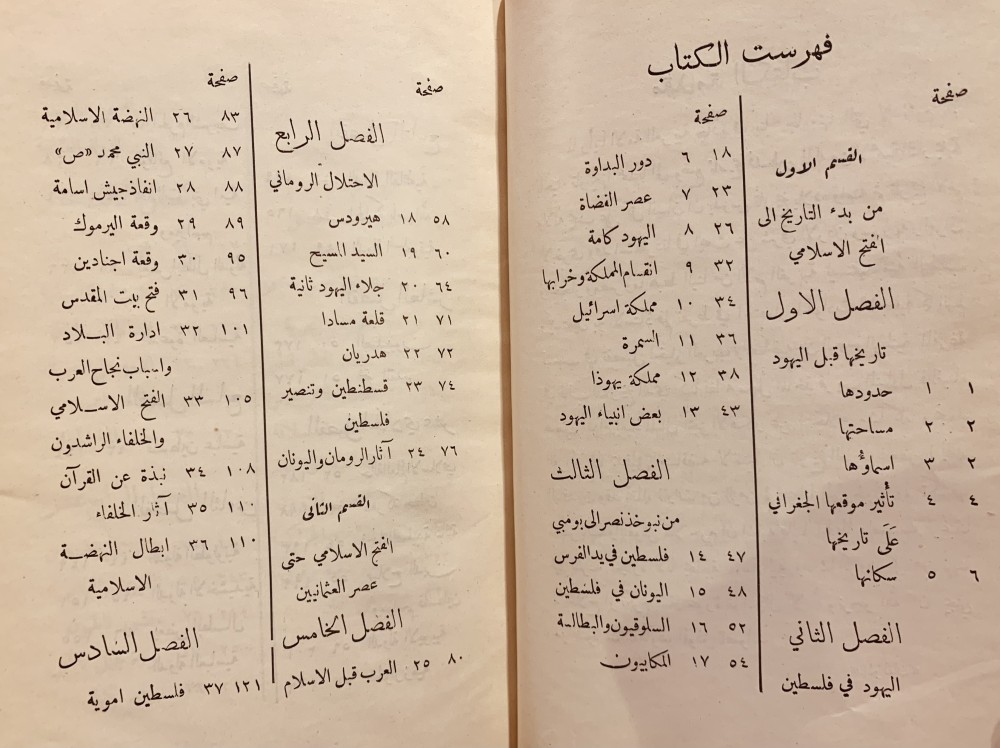 فهرست الكتاب
صفحة
القسم الاول
من بدء التاريخ الى
الفتح الاسلامي
الفصل الاول
تاريخها قبل اليهود
١ ١ حدودها
٢ ٢ مساحتها
٢ ٣ اسماؤها
٤ ٤ تأثير موقعها الجغرافي
عَلَى تاريخها
٦ ٥ سكانها
الفصل الثاني
اليهود في فلسطين
صفحة
١٨ ٦ دور البداوة
٢٣ ٧ عصر القضاة
٢٦ ٨ اليهود كامة
٣٢ ٩ انقسام المملكة وخرابها
٣٤ ١٠ مملكة اسرائيل
٣٦ ١١ السمرة
٣٨ ١٢ مملكة يهوذا
٤٣ ١٣ بعض انبياء اليهود
الفصل الثالث
من نبوخذنصر الى بومبي
٤٧ ١٤ فلسطين في يد الفرس
٤٨ ١٥ اليونان في فلسطين
٥٢ ١٦ السلوقيون والبطالسة
٥٤ ١٧ المكابيون
صفحة
الفصل الرابع
الاحتلال الروماني
٥٨ ١٨ هيرودس
٦٠ ١٩ السيد المسيح
٦٤ ٢٠ جلاء اليهود ثانية
٧١ ٢١ قلعة مسادا
٧٢ ٢٢ هدريان
٧٤ ٢٣ قسطنطين وتنصير
فلسطين
٧٦ ٢٤ آثار الرومان واليونان
القسم الثانى
الفتح الاسلامي حتى
عصر العثمانيين
الفصل الخامس
٨٠ ٢٥ العرب قبل الاسلام
صفحة
٨٣ ٢٦ النهضة الاسلامية
٨٧ ٢٧ النبي محمد «ص»
٨٨ ٢٨ انفاذ جيش اسامة
٨٩ ٢٩ وقعة اليرموك
٩٥ ٣٠ وقعة اجنادين
٩٦ ٣١ فتح بيت المقدس
١٠١ ٣٢ ادارة البلاد
واسباب نجاح العرب
١٠٥ ٣٣ الفتح الاسلامي
والخلفاء الراشدون
١٠٨ ٣٤ نبذة عن القرآن
١١٠ ٣٥ آثار الخلفاء
١١٠ ٣٦ ابطال النهضة
الاسلامية
الفصل السادس
١٢١ ٣٧ فلسطين اموية